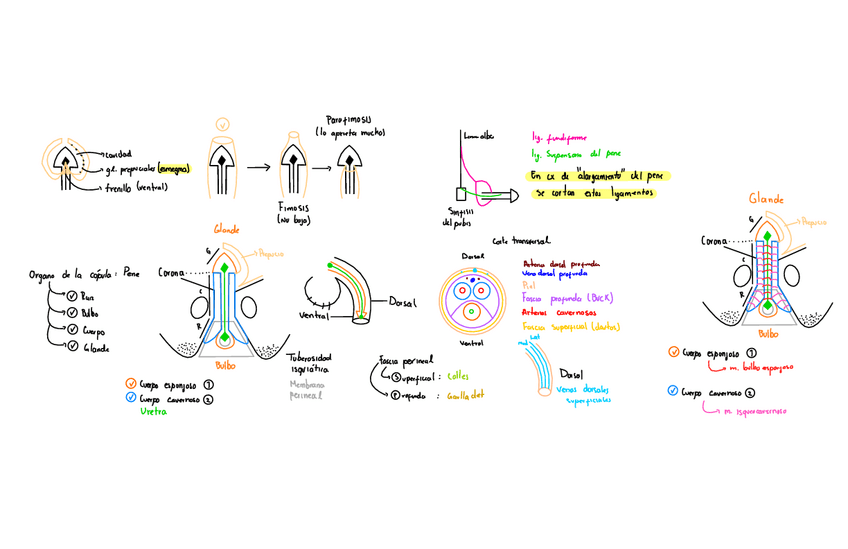 cavidad
gl. prepuciales (esmegma)
frenillo (ventral)
Fimosis
(No baja)
Parafimosis
(lo aprieta mucho)
Linea alba
Sínfisis
del pubis
lig. fundiforme
lig. Suspensorio del pene
En cx de "alargamiento" del pene
se cortan estos ligamentos
Organo de la cópula: Pene
Raiz
Bulbo
Cuerpo
Glande
Glande
Prepucio
G
Corona
C
R
Bulbo
Cuerpo esponjoso 1
Cuerpo cavernoso 2
Uretra
Tuberosidad
isquiática
Membrana
perineal
Ventral
Dorsal
Fascia perineal
S uperficial: Colles
P rofunda: Gaulladet
Corte transversal
Dorsal
Ventral
Arteria dorsal profunda
Vena dorsal profunda
Piel
Fascia profunda (BUCK)
Arterias cavernosas
Fascia superficial (dartos)
Dorsal
Venas dorsales
superficiales
Glande
Prepucio
G
Corona
C
R
Bulbo
Cuerpo esponjoso 1
m. bulbo esponjoso
Cuerpo cavernoso 2
m. Isquiocavernoso